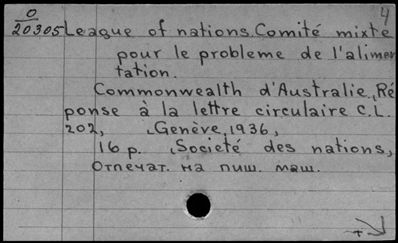 4
O
20305 League of nations. Comité mixte
pour le probleme de l'alimen
tation.
Commonwealth d'Australie, Ré
ponse à la lettre circulaire C.L.
202, Genève, 1936,
16 p. Societé des nations,
Отпечат. на пиш. маш.